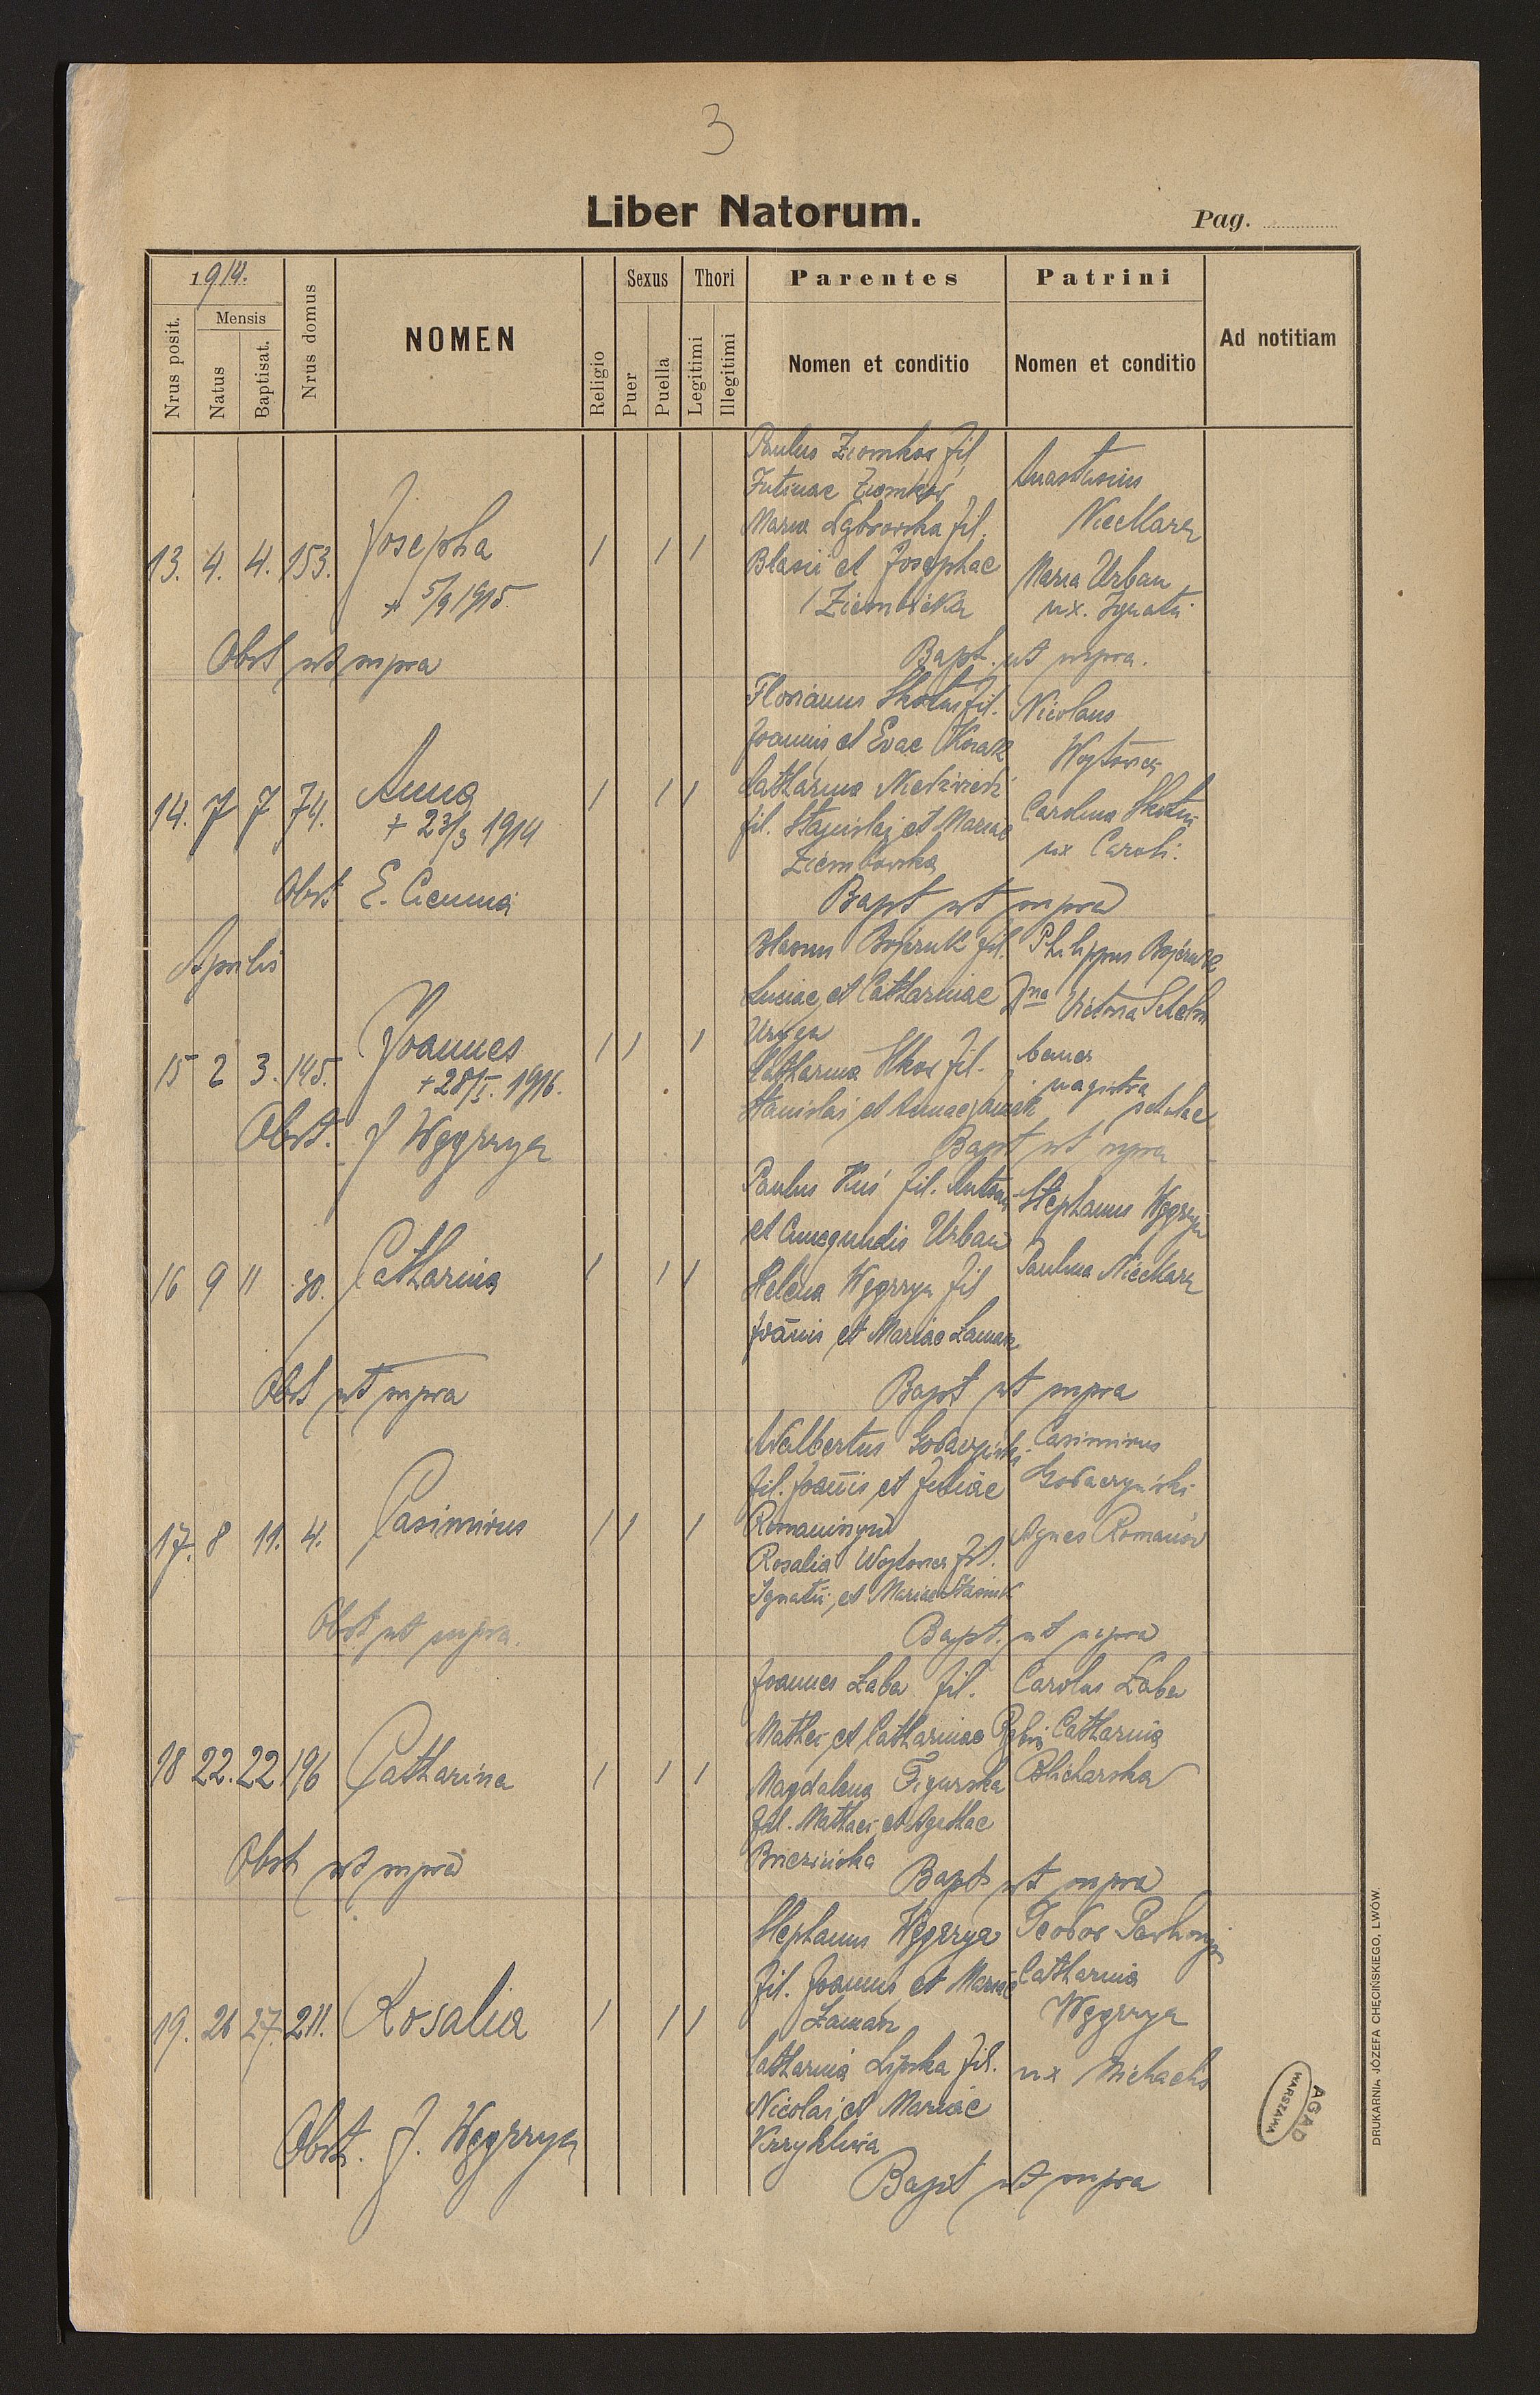 3
Liber Natorum.
Pag.
1914.
Nrus posit.
Mensis
Natus
Baptisat.
Nrus domus
NOMEN
Religio
Sexus
Puer
Puella
Thori
Legitimi
Illegitimi
Parentes
Nomen et conditio
Patrini
Nomen et conditio
Ad notitiam
13. 4. 4. 153. Josepha 1 1 1
+ 5/9 1915.
Paulus Ziomkor fil
Ziomkor
Maria fil.
Blasii et Josephae
Anastasius
Nieckarz
Maria Urban
ux. Ignatii
Obst ut supra
Bapt. ut supra.
14. 7 7 74. Anna 1 1 1
+ 23/3 1914
Florianus fil.
Joannis et Evae
Catharina
fil. Stanislai et Mariae
Ziembowska
Nicolaus
Wojtowicz
Carolina
ux Caroli.
Obst E. Ciemna
Bapt ut supra
Aprilis
15 2 3. 145. Joannes 1 1 1
+ 28/I. 1916.
Bojczuk fil.
Luciae et Catharinae
Catharina fil.
Stanislai et
Philippus Bojczuk
Dna Victoria
magistra
Obst. J Węgrzyn
Bapt ut supra
16 9 11 30. Catharina 1 1 1
Paulus Kuś fil. Antonii
et Cunegundis Urban
Helena Węgrzyn fil
Joānis et Mariae
Stephanus Węgrzyn
Paulina Nieckarz
Obst ut supra
Bapt ut supra
17. 8 11. 4. Casimirus 1 1 1
Adalbertus
fil. Joānis et Juliae
Rosalia Wojtowicz fil.
Ignatii et Mariae
Casimirus
Agnes Romanów
Obst ut supra.
Bapt. ut supra
18 22. 22 196 Catharina 1 1 1
Joannes Łaba fil.
Mathei et Catharinae
Magdalena Figurska
fil. Mathaei et Agathae
Carolus Łaba
Catharina
Obst ut supra
Bapt ut supra
19. 26 27. 211. Rosalia 1 1 1
Stephanus Węgrzyn
fil. Joannis et Mariae
Catharina Lipska fil.
Nicolai et Mariae
Teodor
Catharina
Węgrzyn
ux Michaelis
Obst. J. Węgrzyn
Bapt ut supra
AGAD
WARSZAWA
DRUKARNIA JÓZEFA CHĘCIŃSKIEGO, LWÓW.